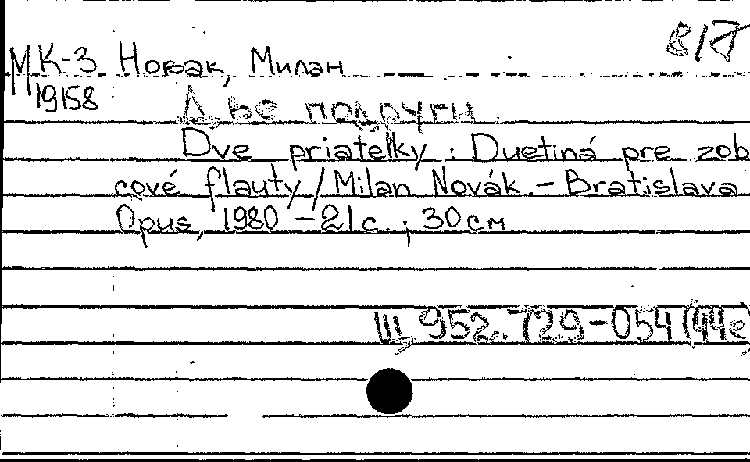 8/7
МК-3 Новак, Милан
19158
Две подруги
Dve priateľky : Duetiná pre zob
cové flauty / Milan Novák. – Bratislava
Opus, 1980 – 21 с. ; 30 см
Щ 952.729-054(44е)